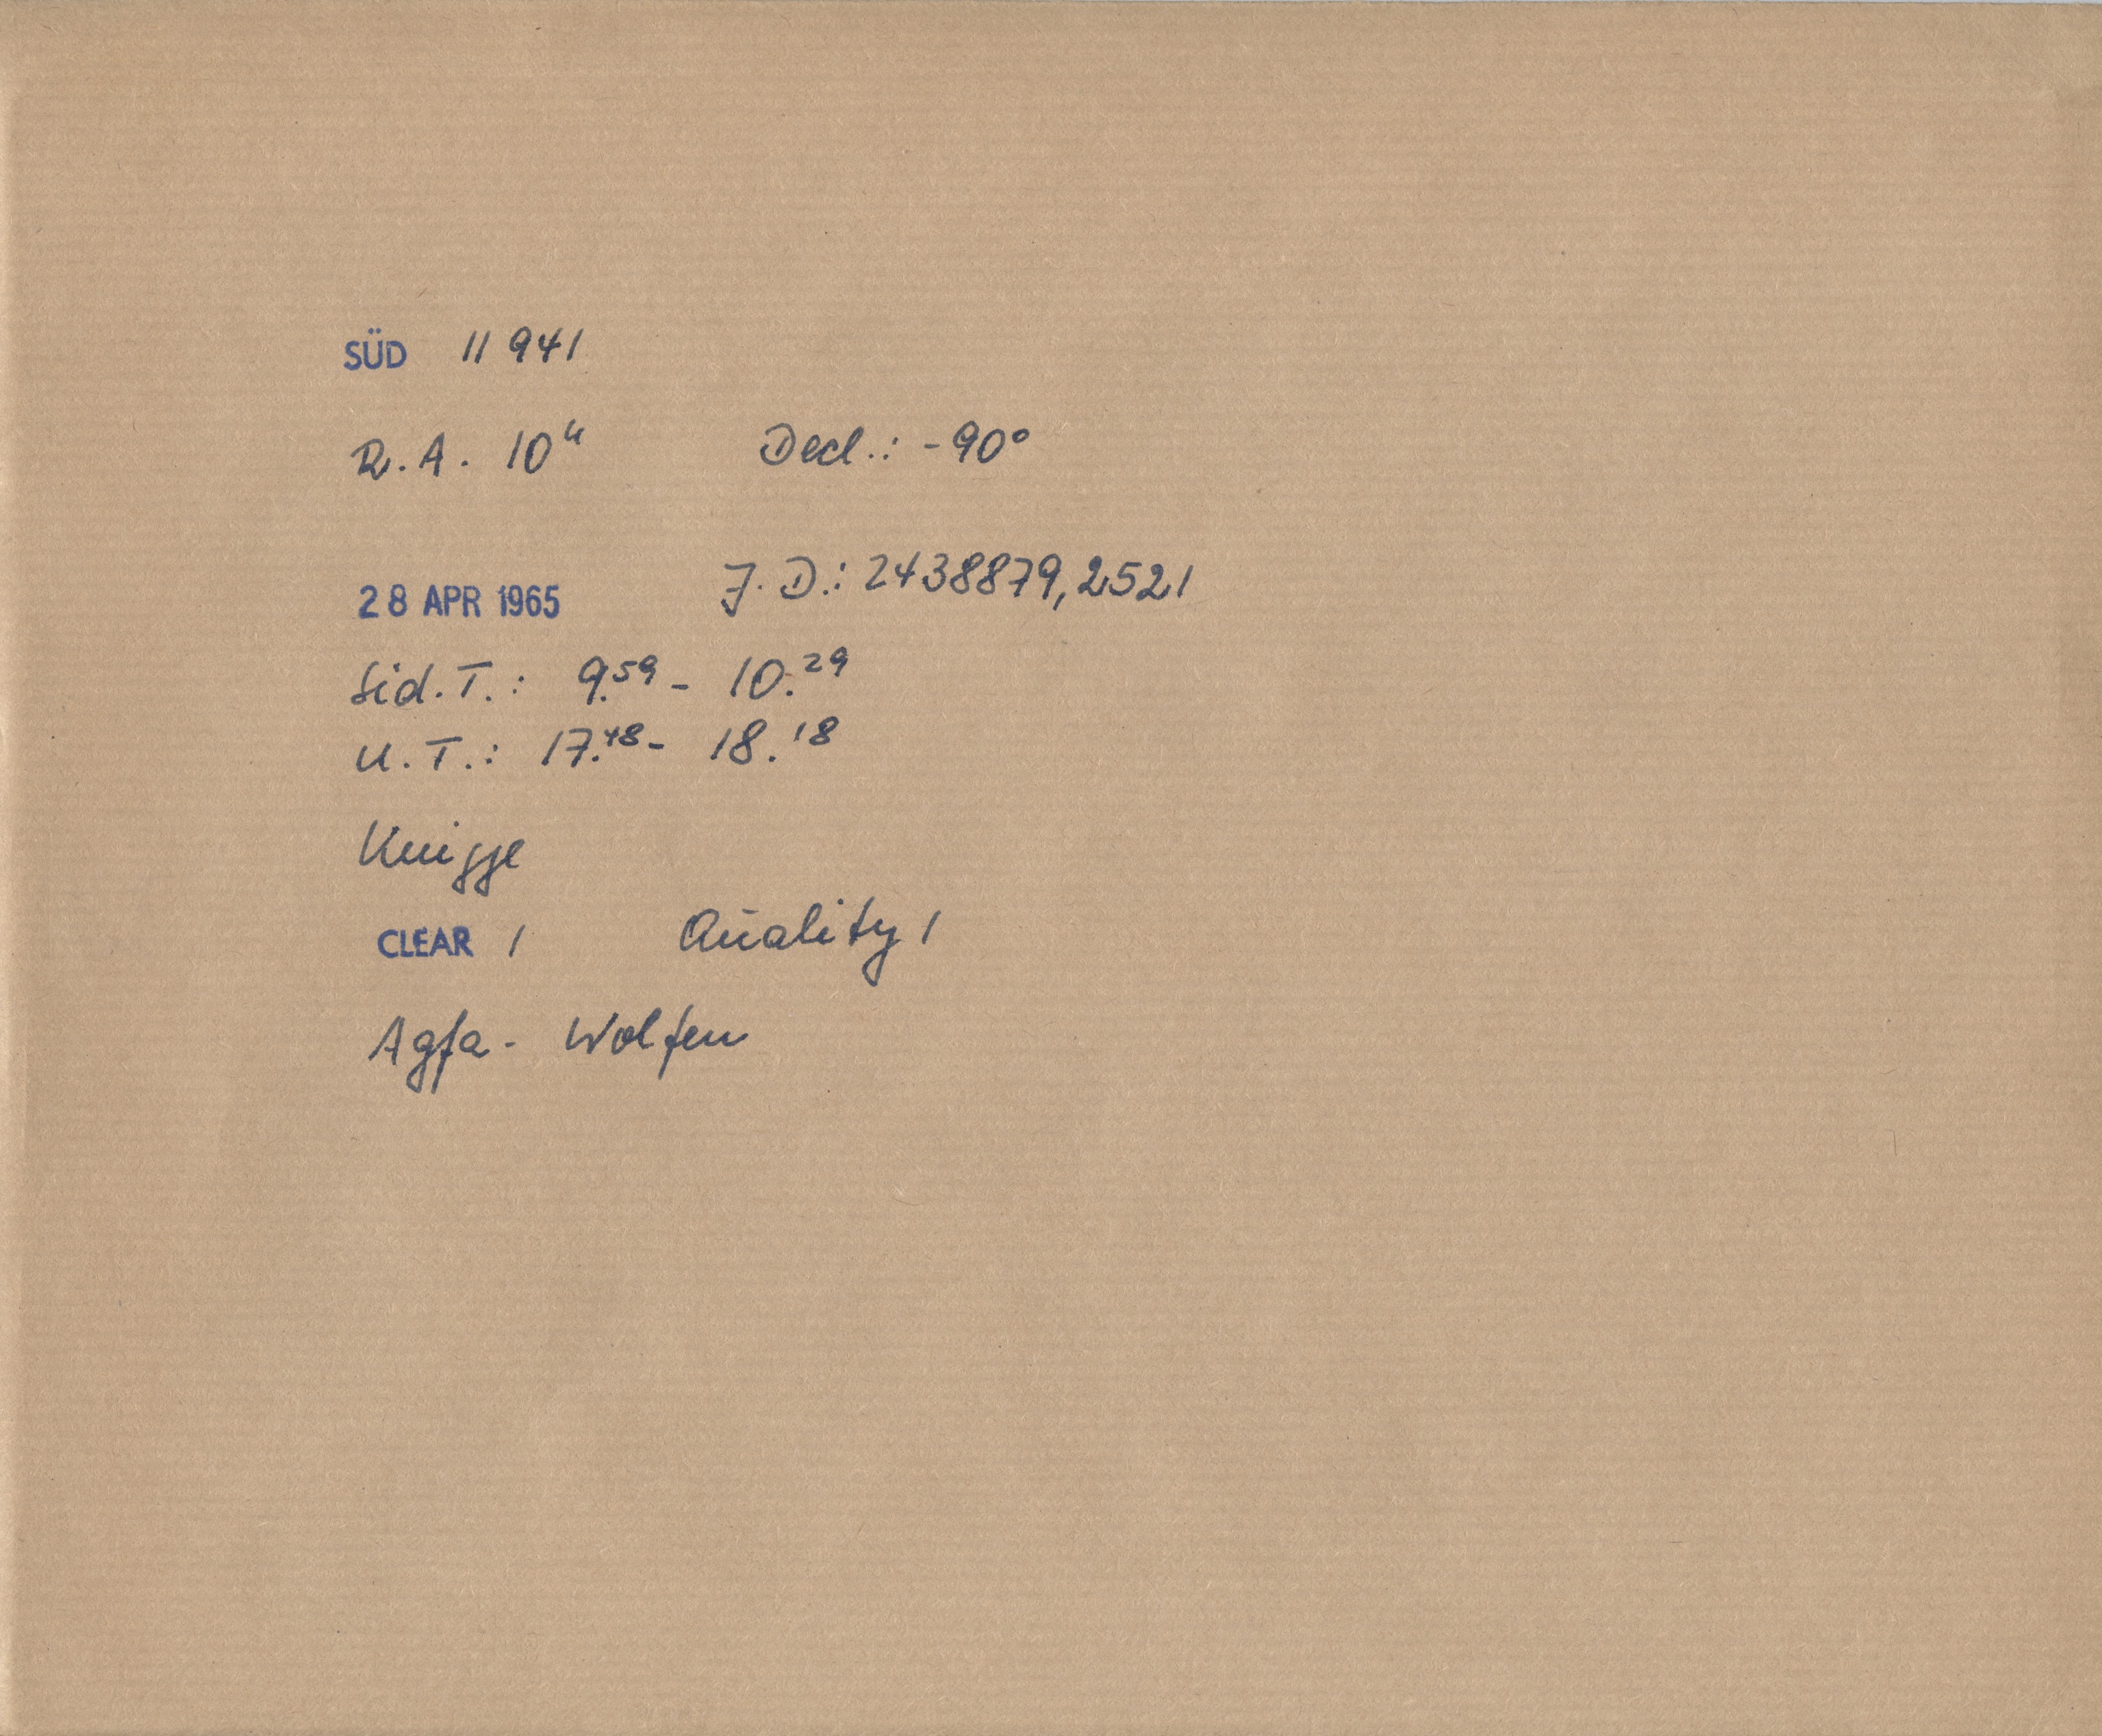 SÜD 11 941
R.A. 10ʰ Decl.: -90°
28 APR 1965 J.D.: 2438879,2521
Sid.T.: 9.⁵⁹ - 10.²⁹
U.T.: 17.⁴⁸ - 18.¹⁸
Knigge
CLEAR 1 Quality 1
Agfa - Wolfen